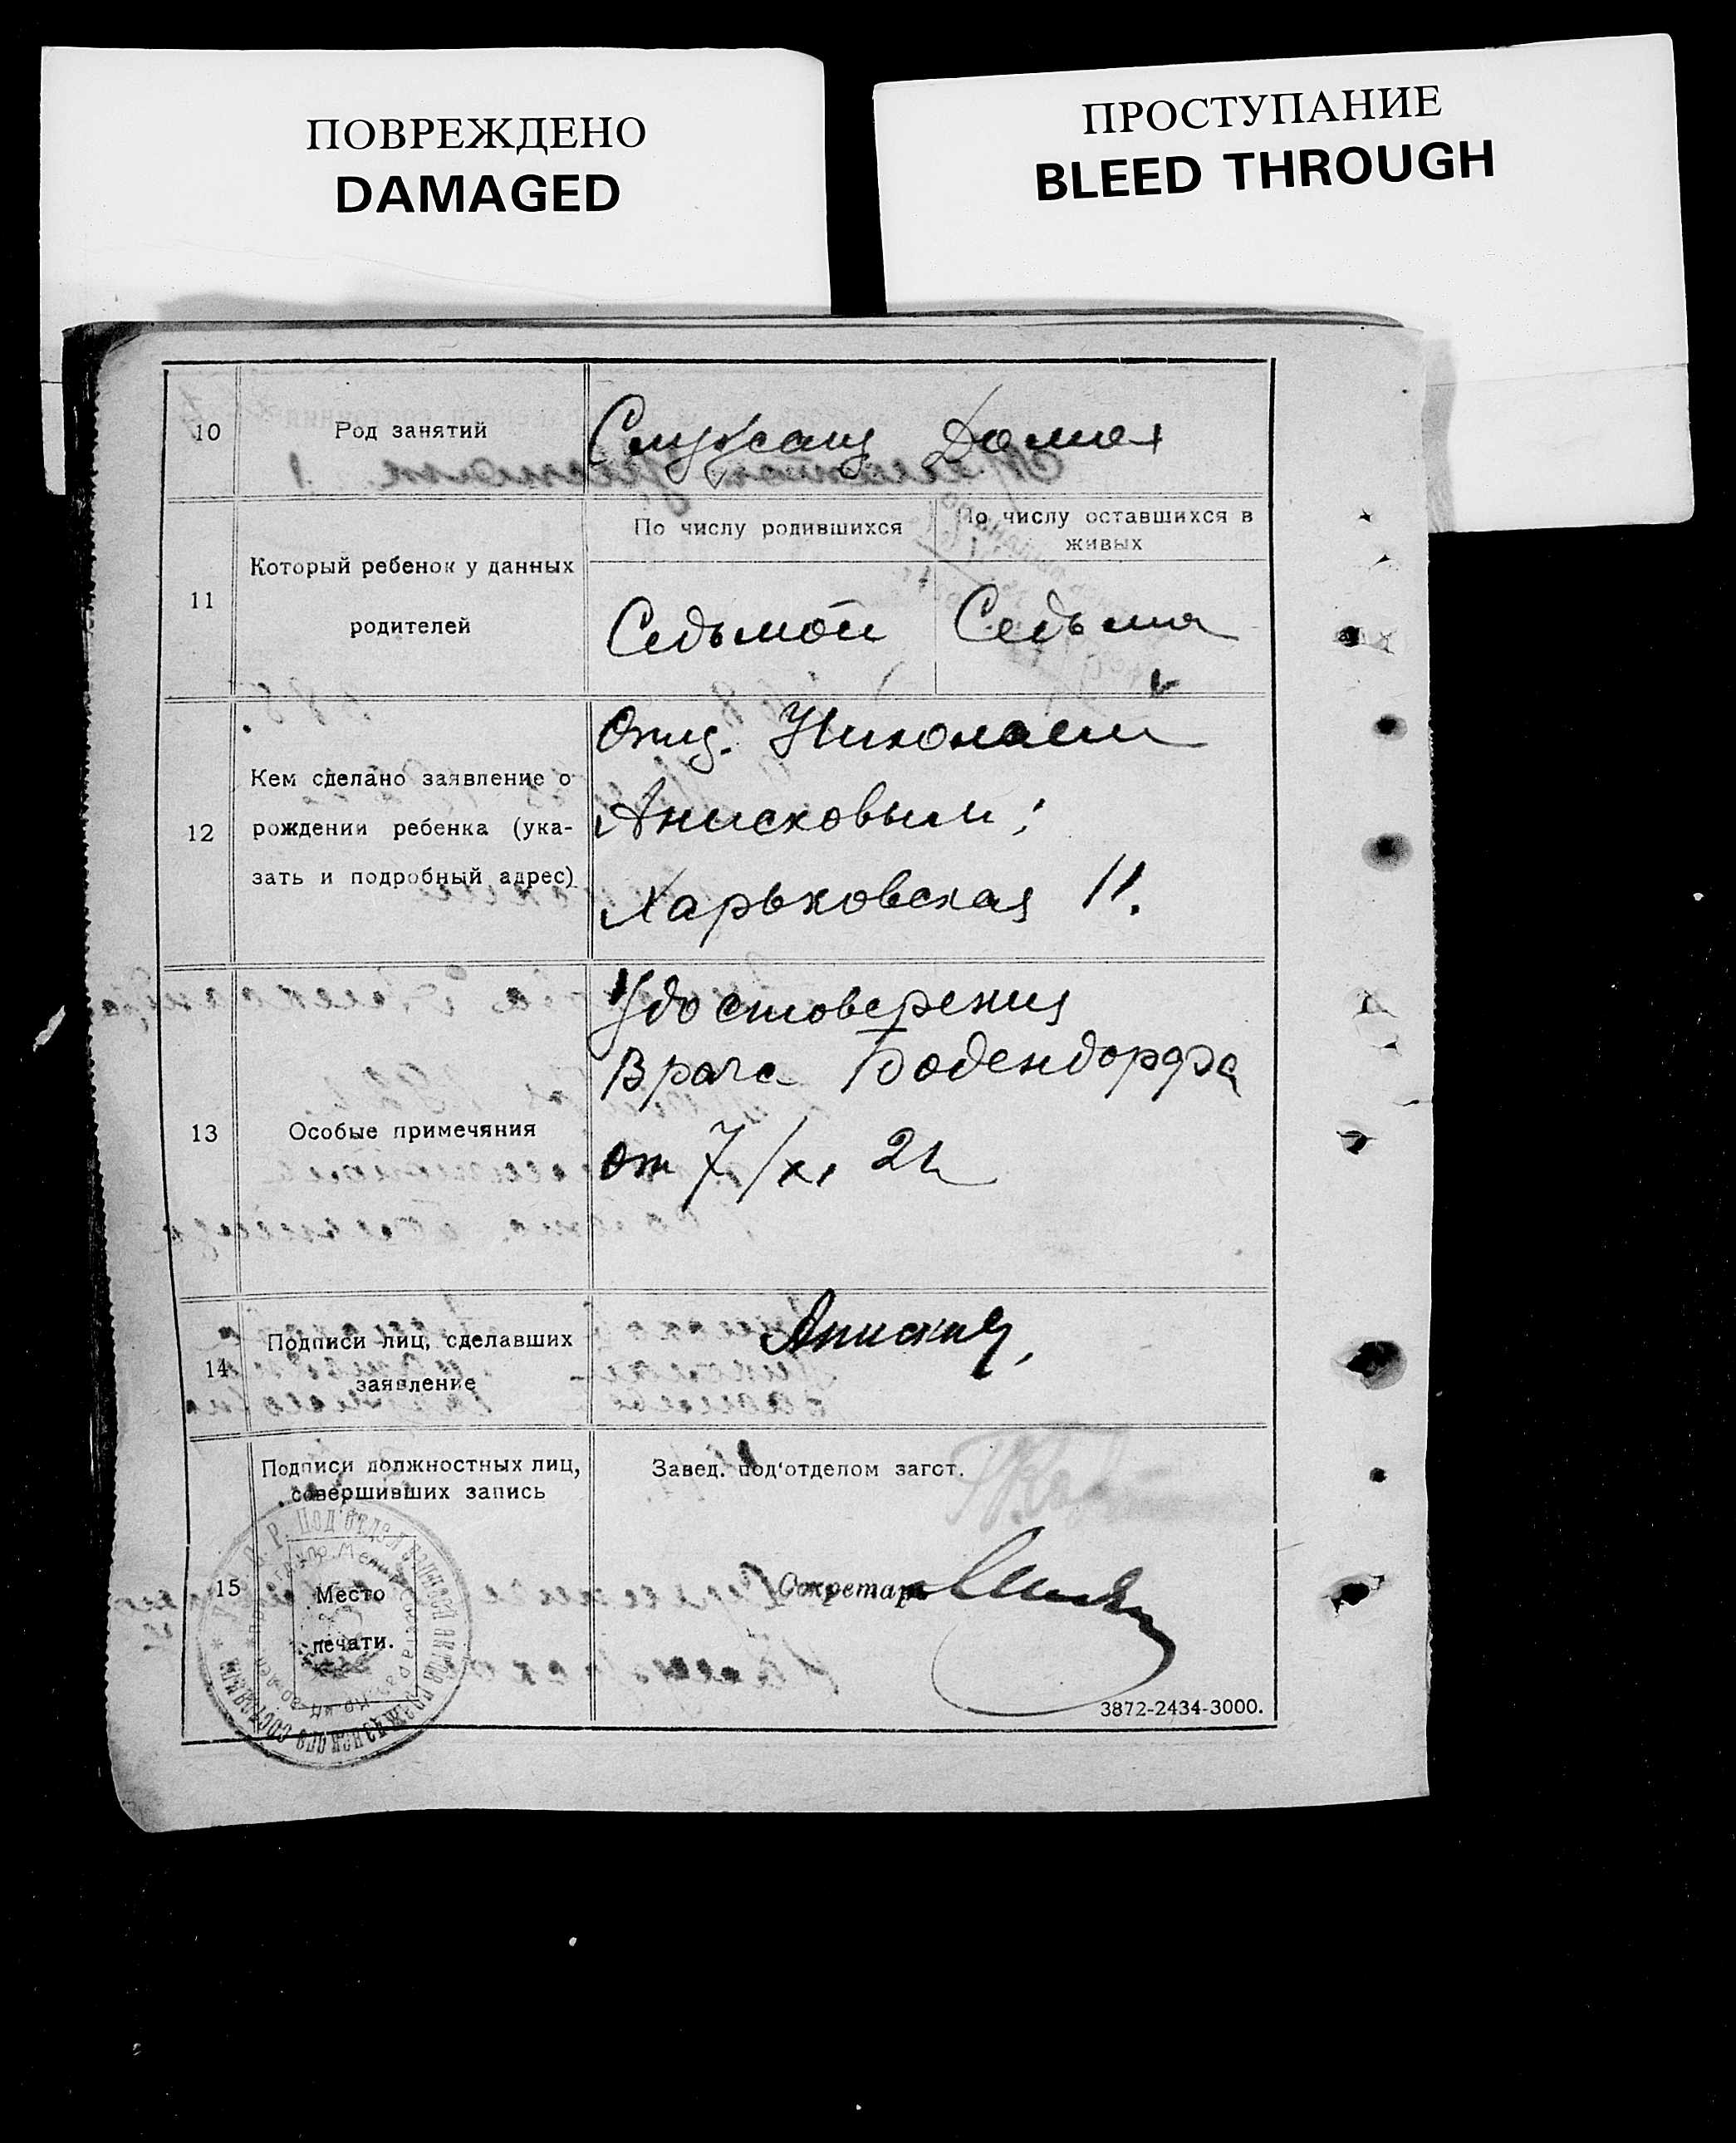 ПОВРЕЖДЕНО
DAMAGED
ПРОСТУПАНИЕ
BLEED THROUGH
10
Род занятий
Служащ Домаш
11
Который ребенок у данных
родителей
По числу родившихся
По числу оставшихся в
живых
Седьмой
Седьмой
12
Кем сделано заявление о
рождении ребенка (ука-
зать и подробный адрес)
Отц. Николаем
Анисковым;
Харьковская 11.
13
Особые примечяния
Удостоверения
Врача Бодендорфа
от 7/XI 21
14
Подписи лиц, сделавших
заявление
15
Подписи должностных лиц,
совершивших запись
Место
печати.
Завед. под'отделом загст.
Секретарь
3872-2434-3000.